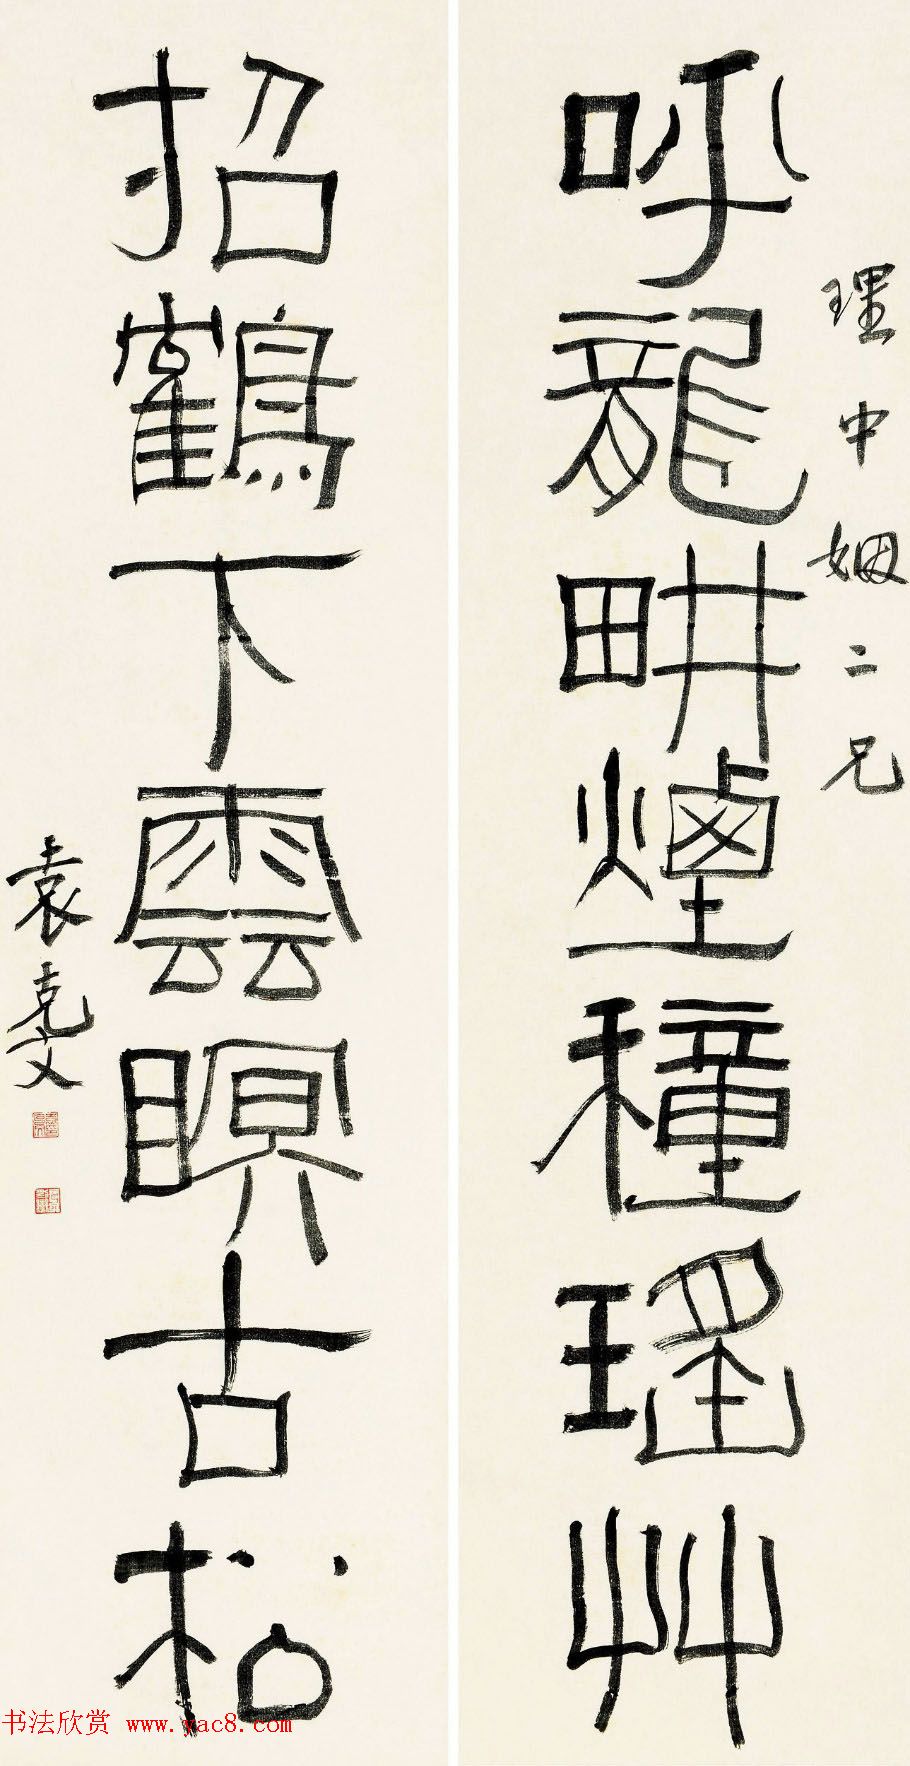 理中姻二兄
呼龍畊煙種瑤艸
招鶴下雲瞑古松
袁克文
书法欣赏 www.yac8.com